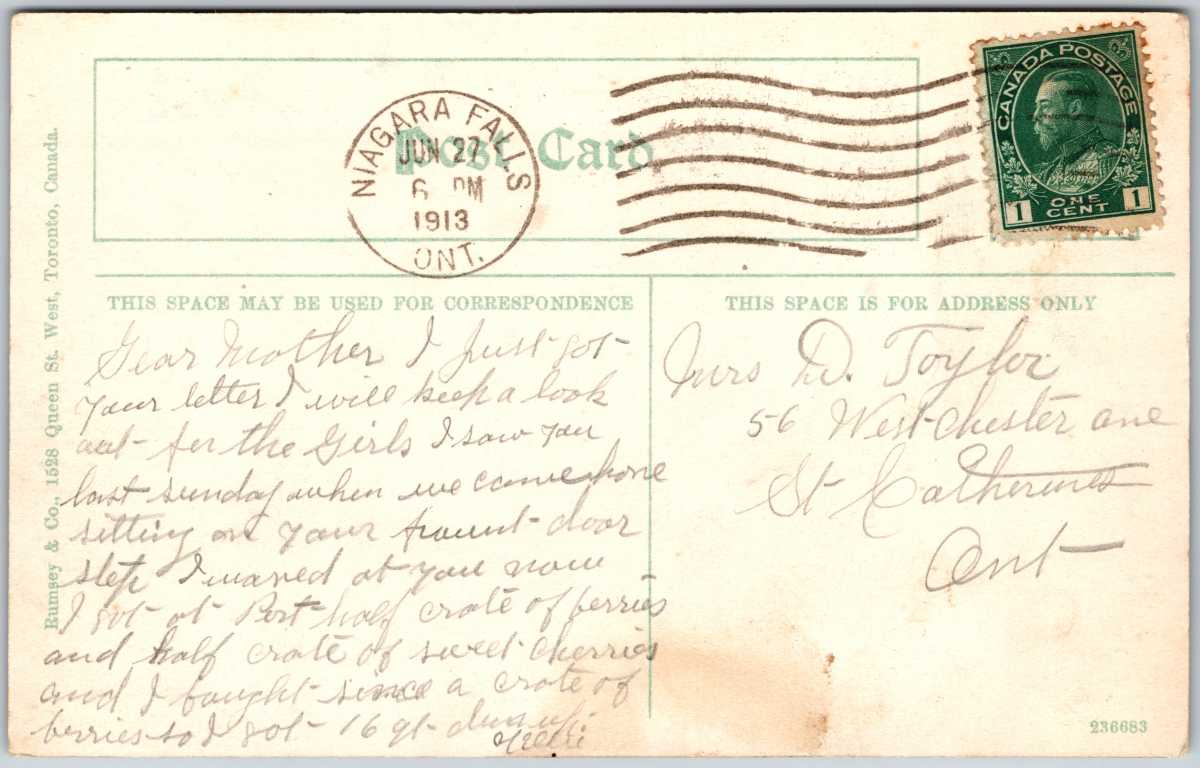 Post Card
NIAGARA FALLS
JUN 27
6 PM
1913
ONT.
CANADA POSTAGE
1 ONE CENT 1
THIS SPACE MAY BE USED FOR CORRESPONDENCE
THIS SPACE IS FOR ADDRESS ONLY
Dear Mother I just got
your letter I will keep a look
out for the Girls I saw you
last sunday when we come home
sitting on your frount door
step I waved at you now
I got at Port half crate of berries
and half crate of sweet cherries
and I bought since a crate of
berries so I got 16 qt
Mrs D. Taylor
56 Westchester ave
St Catherines
Ont
Rumsey & Co., 1528 Queen St. West, Toronto, Canada.
236683